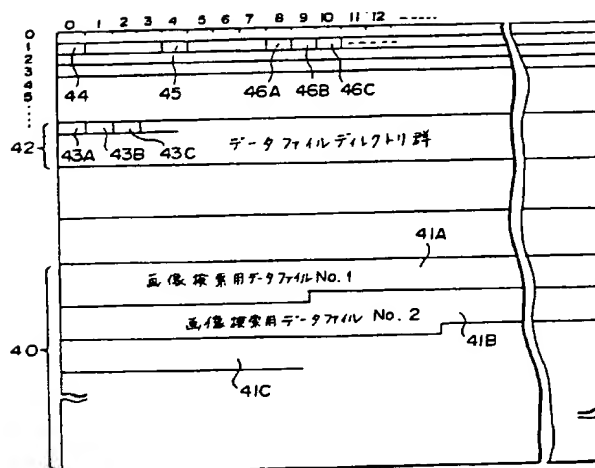 0 1 2 3 4 5 6 7 8 9 10 11 12 -----
0
1
2
3
4
5
44 45 46A 46B 46C
42
43A 43B 43C データファイルディレクトリ群
41A
画像検索用データファイル No. 1
画像検索用データファイル No. 2
41B
40
41C